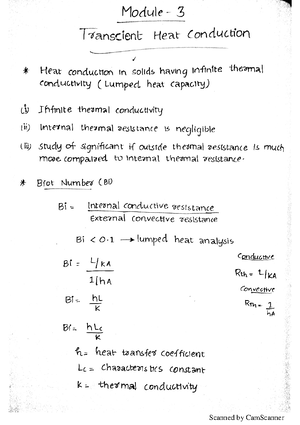 Module - 3
Transcient Heat Conduction
* Heat conduction in solids having infinite thermal
conductivity (Lumped heat capacity)
(i) Infinite thermal conductivity
(ii) Internal thermal resistance is negligible
(iii) Study of significant if outside thermal resistance is much
more compaired to internal thermal resistance.
* Biot Number (Bi)
Bi = Internal conductive resistance
External convective resistance
Bi < 0.1 → lumped heat analysis
Bi = L/KA
1/hA
Conductive
Rth = L/KA
Convective
Rth = 1
hA
Bi = hL
K
Bi = hLc
K
h = heat transfer coefficient
Lc = characteristics constant
K = thermal conductivity
Scanned by CamScanner